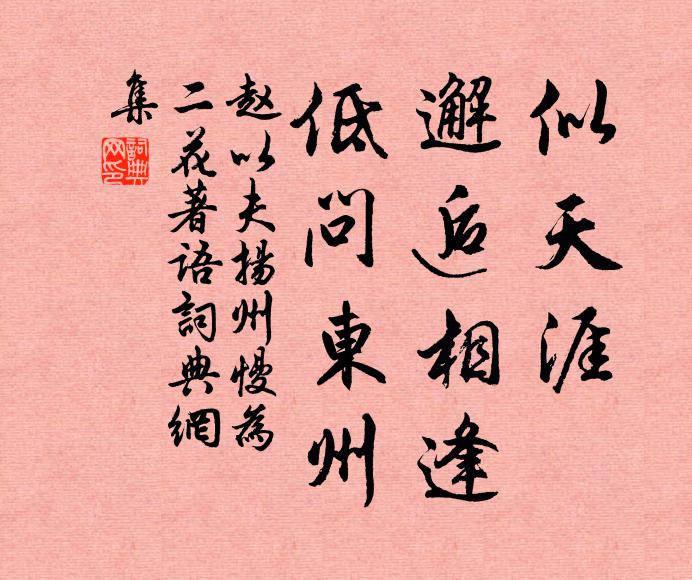 似天涯
邂逅相逢
低問東州
赵以夫揚州慢為
二花著语詞典網
集
詞典
网印